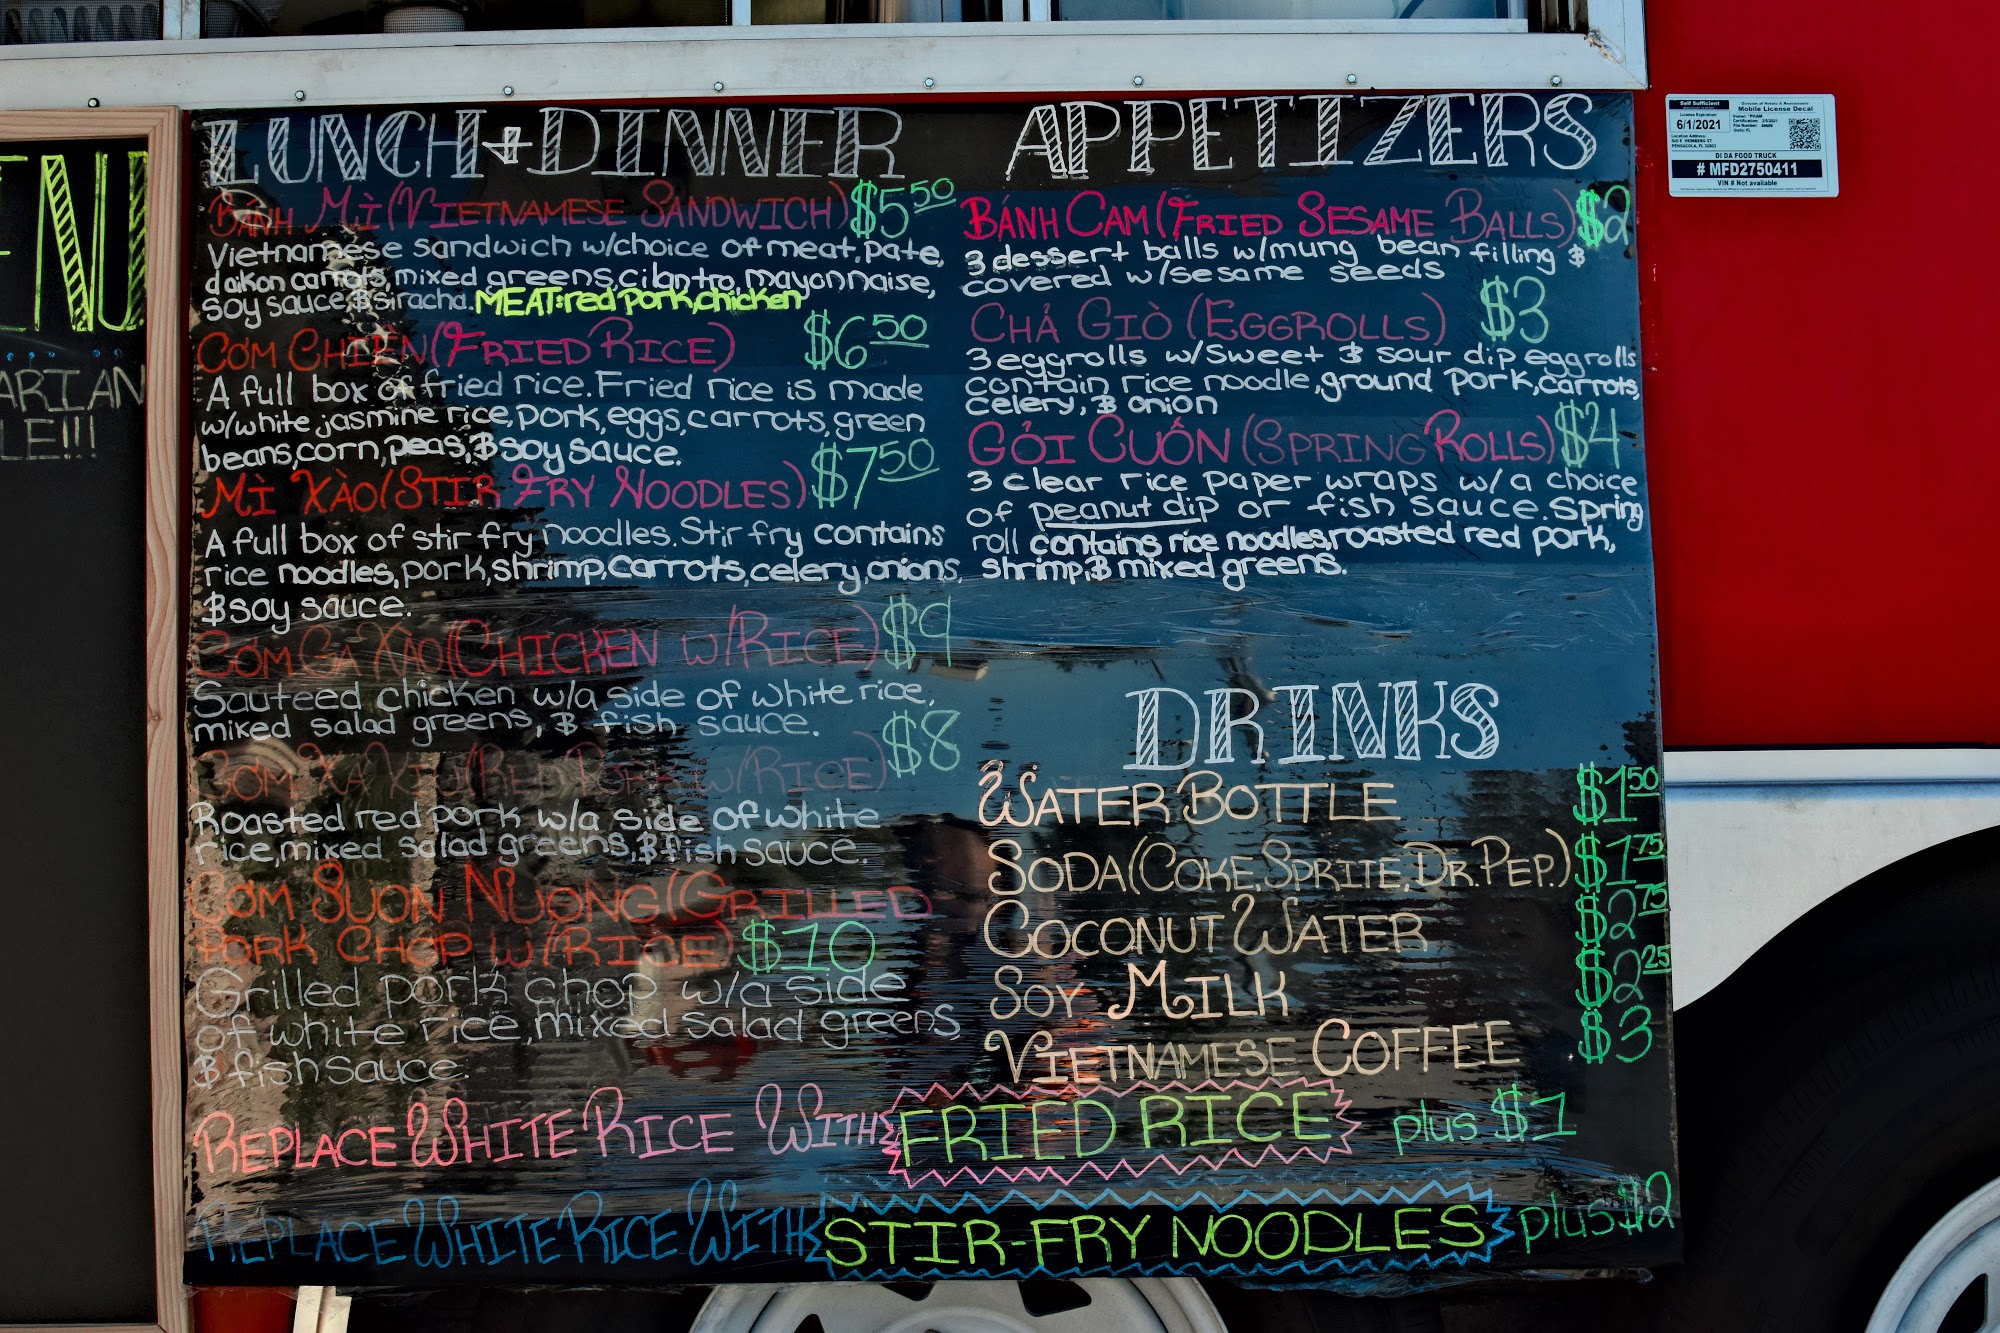 ENU
ARIAN
LE!!!
LUNCH + DINNER
BÁNH MÌ (VIETNAMESE SANDWICH) $5.50
Vietnamese sandwich w/choice of meat, pate,
daikon carrots, mixed greens, cilantro, mayonnaise,
soy sauce, & siracha. MEAT: red pork, chicken
CƠM CHIEN (FRIED RICE) $6.50
A full box of fried rice. Fried rice is made
w/white jasmine rice, pork, eggs, carrots, green
beans, corn, peas, & soy sauce.
MÌ XÀO (STIR FRY NOODLES) $7.50
A full box of stir fry noodles. Stir fry contains
rice noodles, pork, shrimp, carrots, celery, onions,
& soy sauce.
CƠM GÀ XÀO (CHICKEN W/RICE) $9
Sauteed chicken w/a side of white rice,
mixed salad greens, & fish sauce.
CƠM XÁ XÍU (RED PORK W/RICE) $8
Roasted red pork w/a side of white
rice, mixed salad greens, & fish sauce.
CƠM SUON NUONG (GRILLED
PORK CHOP W/RICE) $10
Grilled pork chop w/a side
of white rice, mixed salad greens,
& fish sauce.
APPETIZERS
BÁNH CAM (FRIED SESAME BALLS) $2
3 dessert balls w/mung bean filling &
covered w/sesame seeds
CHẢ GIÒ (EGGROLLS) $3
3 eggrolls w/sweet & sour dip eggrolls
contain rice noodle, ground pork, carrots,
celery, & onion
GỎI CUỐN (SPRING ROLLS) $4
3 clear rice paper wraps w/a choice
of peanut dip or fish sauce. Spring
roll contains rice noodles, roasted red pork,
shrimp, & mixed greens.
DRINKS
WATER BOTTLE $1.50
SODA (COKE, SPRITE, DR. PEP.) $1.75
COCONUT WATER $2.75
SOY MILK $2.25
VIETNAMESE COFFEE $3
REPLACE WHITE RICE WITH FRIED RICE plus $1
REPLACE WHITE RICE WITH STIR-FRY NOODLES plus $2
Self Sufficient
License Expiration
6/1/2021
Location Address:
PENSACOLA, FL 32503
Division of Hotels & Restaurants
Mobile License Decal
DI DA FOOD TRUCK
# MFD2750411
VIN # Not available